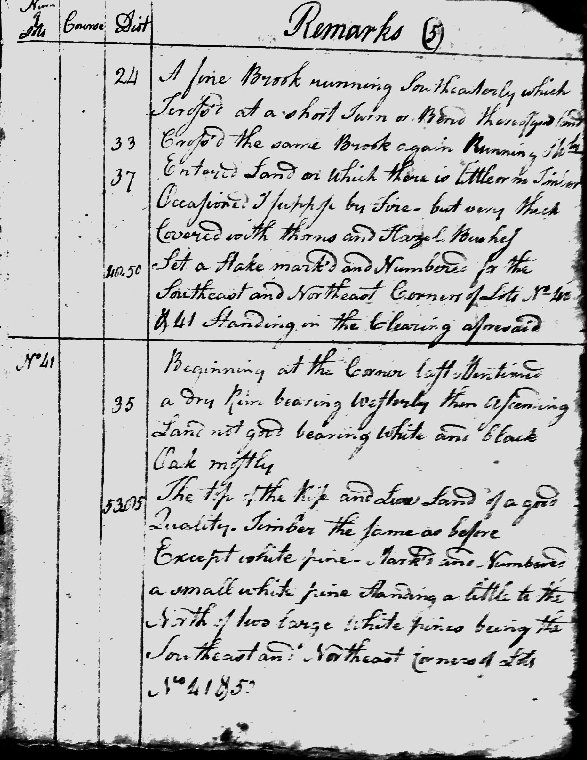 Num
of
Lots Course Dist Remarks (5)
24 A fine Brook running Southeasterly which
I cross'd at a short Turn or Bend thereof
33 Cross'd the same Brook again Running
37 Entered Land on which there is little or no Timber
Occasioned I suppose by Fire - but very thick
Covered with thorns and Hazel Bushes
40.50 Set a Stake mark'd and Numbered for the
Southeast and Northeast Corners of Lots No 40
& 41 Standing in the Clearing aforesaid
No 41 Beginning at the Corner last Mentioned
35 a dry Run bearing Westerly then ascending
Land not good bearing White and black
Oak mostly
The top of the Rise and Land of a good
Quality. Timber the same as before
Except white pine - Mark'd and Numbered
a small white pine standing a little to the
North of two large White pines being the
Southeast and Northeast Corners of Lots
No 41 & 5